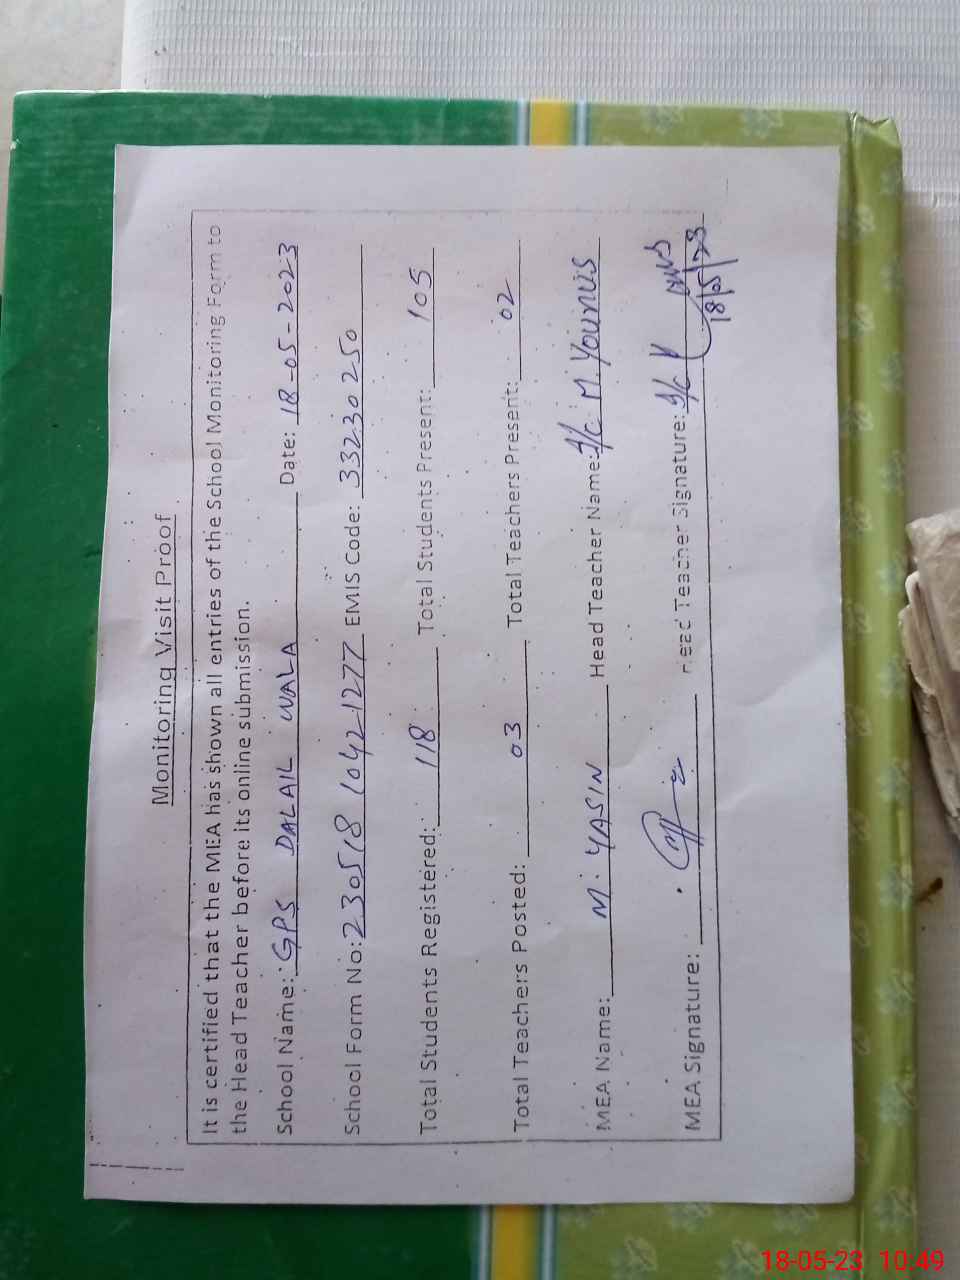 Monitoring Visit Proof
It is certified that the MEA has shown all entries of the School Monitoring Form to
the Head Teacher before its online submission.
School Name: GPS DALAIL WALA Date: 18-05-2023
School Form No: 230518 10421277 EMIS Code: 33230250
Total Students Registered: 118 Total Students Present: 105
Total Teachers Posted: 03 Total Teachers Present: 02
MEA Name: M. YASIN Head Teacher Name: I/C M. YOUNUS
MEA Signature: Head Teacher Signature: I/C
18/05/23
18-05-23 10:49